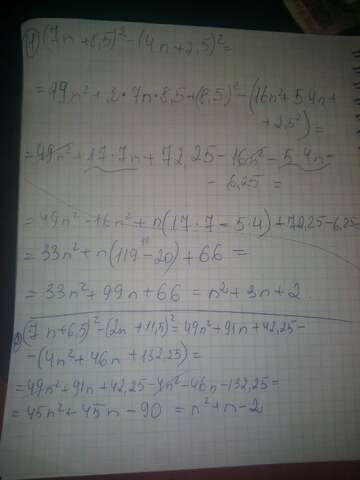 1) (7n+8,5)² - (4n+2,5)² =
= 49n² + 2·7n·8,5 + (8,5)² - (16n² + 5·4n +
+ 2,5²) =
= 49n² + 17·7n + 72,25 - 16n² - 5·4n -
- 6,25 =
= 49n² - 16n² + n(17·7 - 5·4) + 72,25 - 6,25
= 33n² + n(119 - 20) + 66 =
= 33n² + 99n + 66 = n² + 3n + 2
2) (7n+6,5)² - (2n+11,5)² = 49n² + 91n + 42,25 -
- (4n² + 46n + 132,25) =
= 49n² + 91n + 42,25 - 4n² - 46n - 132,25 =
= 45n² + 45n - 90 = n² + n - 2